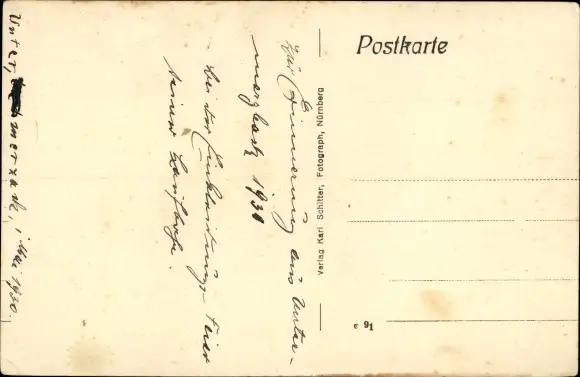 Postkarte
Verlag Karl Schitter, Fotograph, Nürnberg
e 91
Zur Erinnerung aus Unter-
merzbach 1930
bei der Einkleidungs-Feier
meiner
Unter, merzach, 1 Mai 1930.